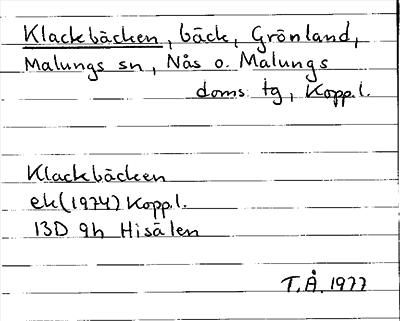 Klackbäcken, bäck, Grönland,
Malungs sn, Nås o. Malungs
doms. tg, Kopp.l.
Klackbäcken
ek (1974) Kopp.l.
13D 9h Hisälen
T.Å. 1977